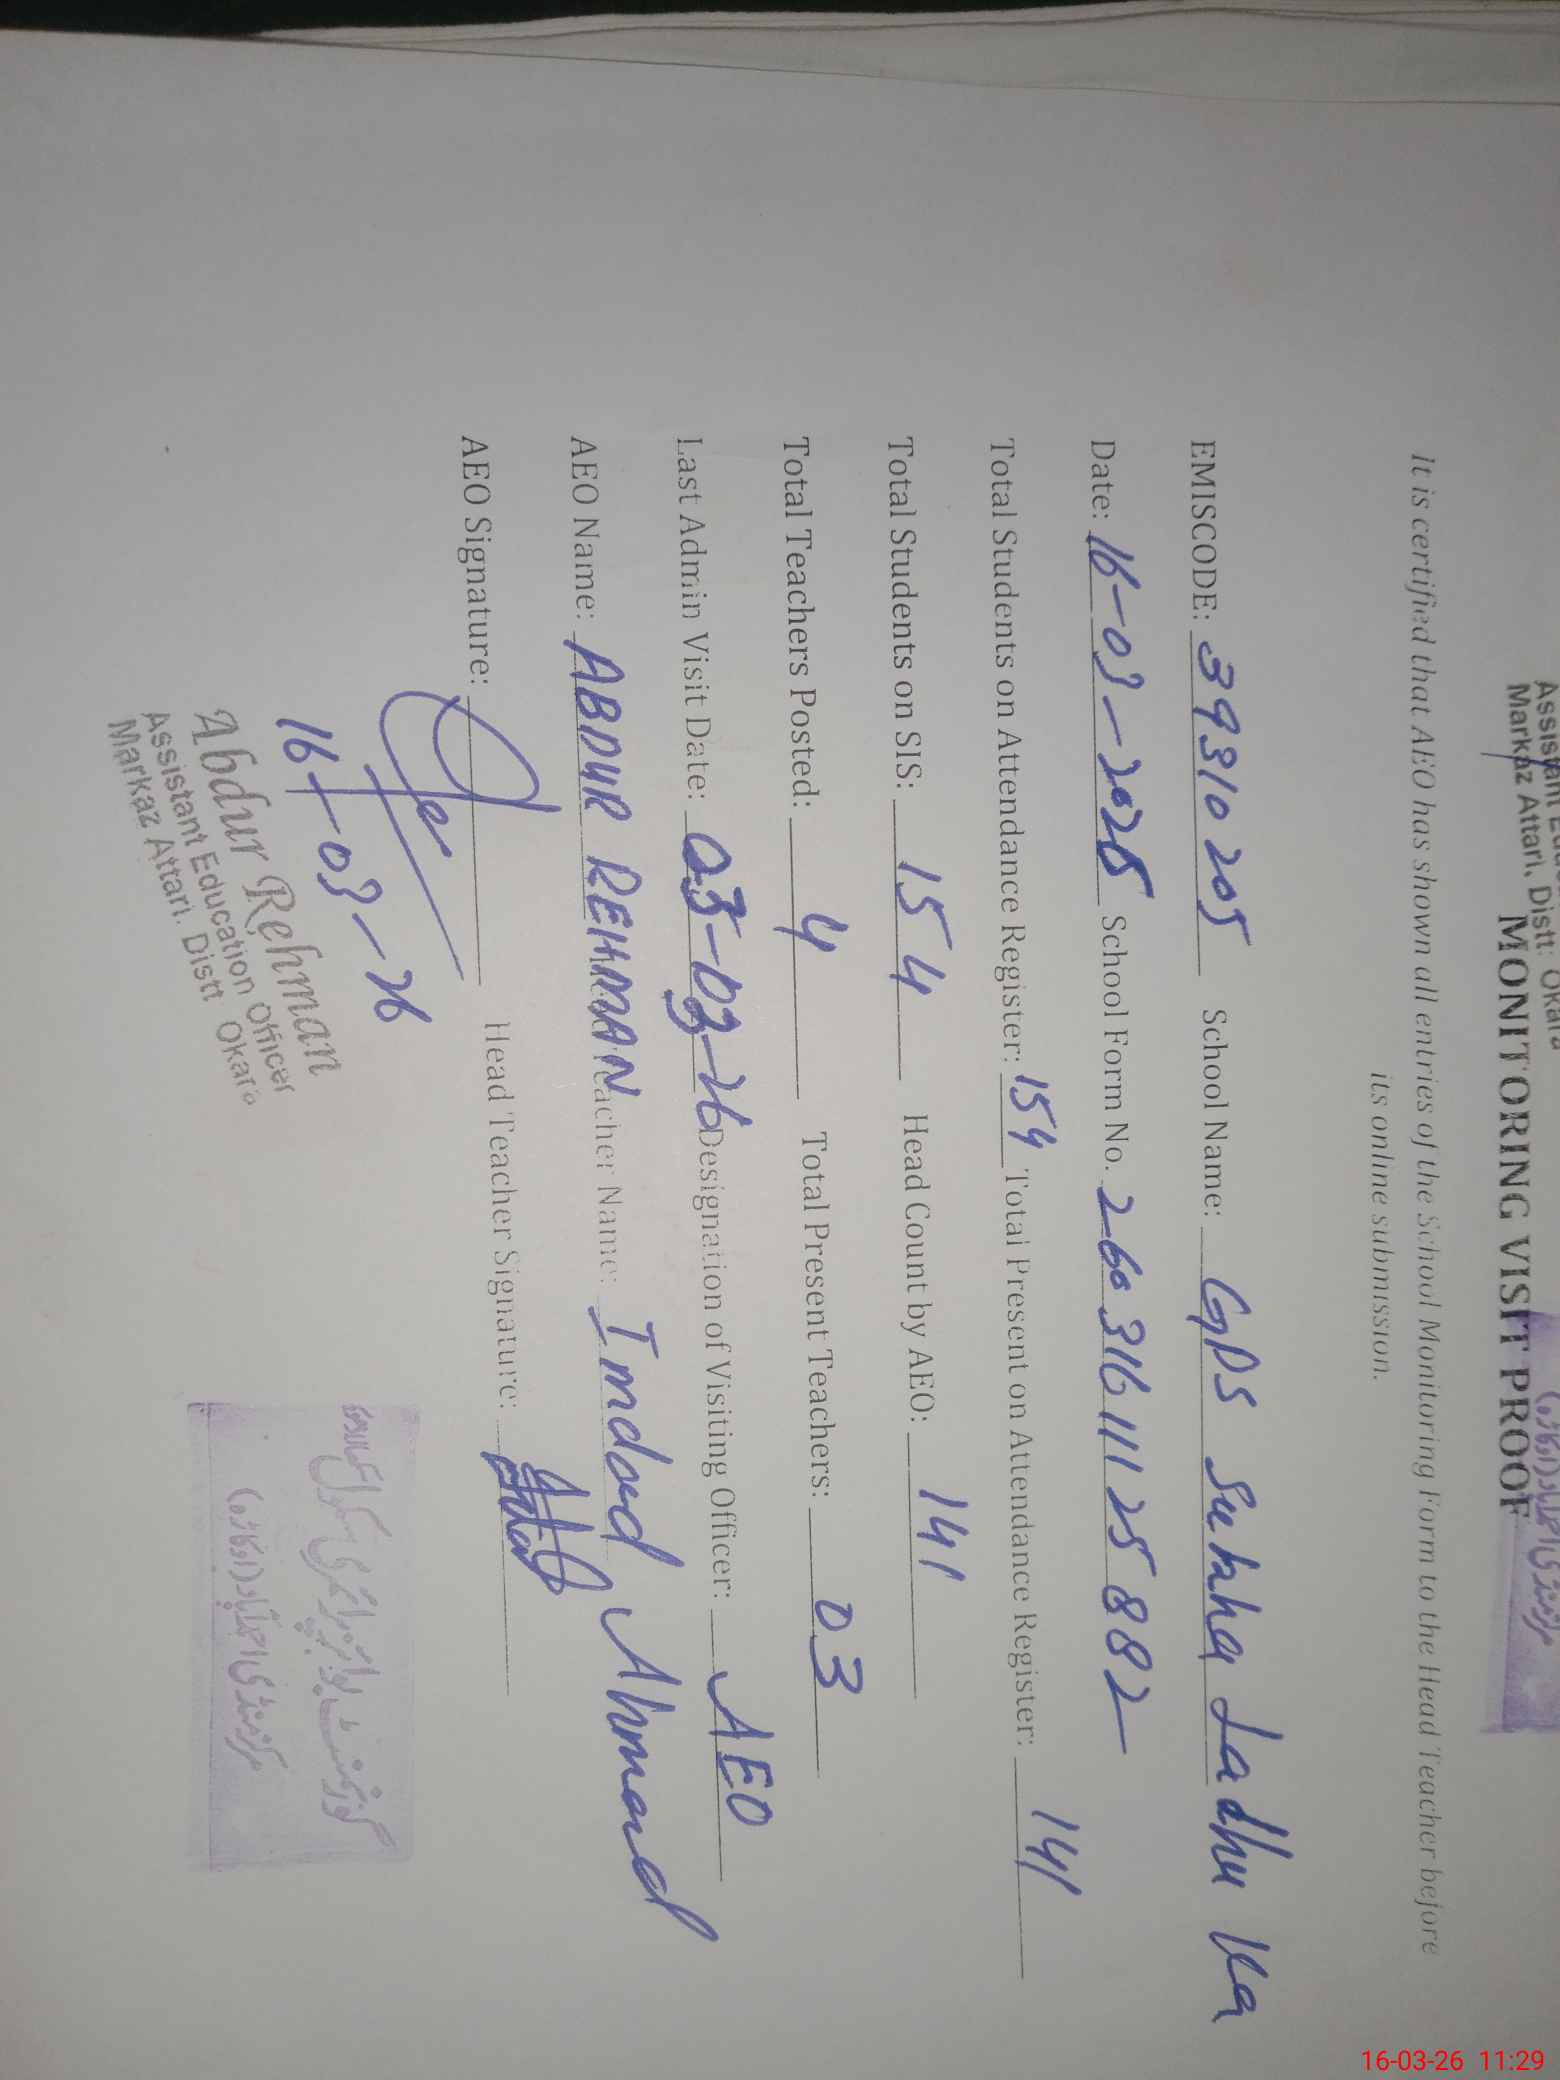 Markaz Attari, Distt: Okara
MONITORING VISIT PROOF
It is certified that AEO has shown all entries of the School Monitoring Form to the Head Teacher before
its online submission.
EMISCODE: 39310205 School Name: GPS Sukha Ladhu Ka
Date: 16-03-2026 School Form No. 26031611125882
Total Students on Attendance Register: 154 Total Present on Attendance Register: 141
Total Students on SIS: 154 Head Count by AEO: 141
Total Teachers Posted: 4 Total Present Teachers: 03
Last Admin Visit Date: 03-03-26 Designation of Visiting Officer: AEO
AEO Name: ABDUR REHMAN Teacher Name: Imdad Ahmad
AEO Signature: Head Teacher Signature:
16-03-26
Abdur Rehman
Assistant Education Officer
Markaz Attari. Distt Okara
گورنمنٹ بوائز پرائمری سکول
16-03-26 11:29